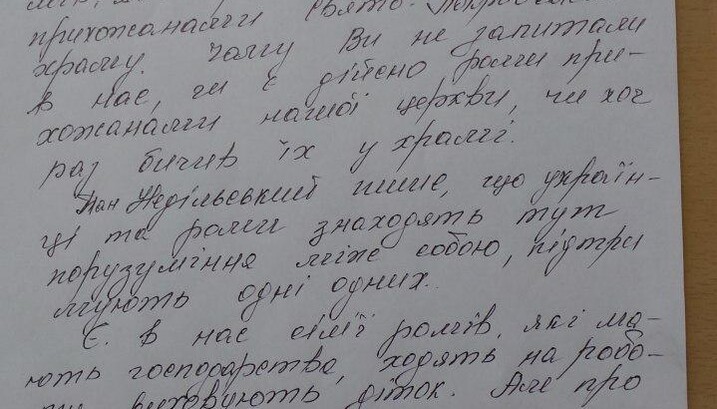 прихожанами Свято-Покровської
храму. Чому Ви не запитали
в нас, чи є дійсно роми при-
хожанами нашої церкви, чи хоч
раз бичив їх у храмі.
Пан Недільський пише, що україн-
ці та роми знаходять тут
порузуміння між собою, підтри
мують одні одних.
Є в нас сімї ромів, які ма-
ють господарства, ходять на робо-
ту виховують діток. Але про